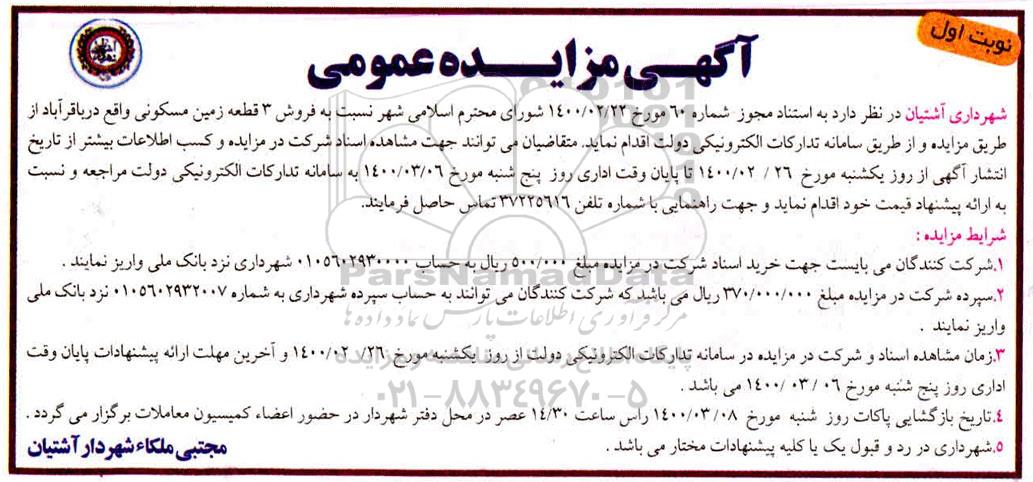 نوبت اول
آگهی مزایده عمومی
شهرداری آشتیان در نظر دارد به استناد مجوز شماره ۶۰ مورخ ۱۴۰۰/۰۲/۲۲ شورای محترم اسلامی شهر نسبت به فروش ۳ قطعه زمین مسکونی واقع درباقرآباد از
طریق مزایده و از طریق سامانه تدارکات الکترونیکی دولت اقدام نماید. متقاضیان می توانند جهت مشاهده اسناد شرکت در مزایده و کسب اطلاعات بیشتر از تاریخ
انتشار آگهی از روز یکشنبه مورخ ۲۶ / ۱۴۰۰/۰۲ تا پایان وقت اداری روز پنج شنبه مورخ ۱۴۰۰/۰۳/۰۶ به سامانه تدارکات الکترونیکی دولت مراجعه و نسبت
به ارائه پیشنهاد قیمت خود اقدام نماید و جهت راهنمایی با شماره تلفن ۳۷۲۲۵۶۱۶ تماس حاصل فرمایند.
شرایط مزایده :
۱.شرکت کنندگان می بایست جهت خرید اسناد شرکت در مزایده مبلغ ۵۰۰/۰۰۰ ریال به حساب ۰۱۰۵۶۰۲۹۳۰۰۰۰ شهرداری نزد بانک ملی واریز نمایند .
۲.سپرده شرکت در مزایده مبلغ ۳۷۰/۰۰۰/۰۰۰ ریال می باشد که شرکت کنندگان می توانند به حساب سپرده شهرداری به شماره ۰۱۰۵۶۰۲۹۳۲۰۰۷ نزد بانک ملی
واریز نمایند .
۳.زمان مشاهده اسناد و شرکت در مزایده در سامانه تدارکات الکترونیکی دولت از روز یکشنبه مورخ ۲۶/ ۱۴۰۰/۰۲ و آخرین مهلت ارائه پیشنهادات پایان وقت
اداری روز پنج شنبه مورخ ۰۶ / ۰۳ /۱۴۰۰ می باشد .
۴.تاریخ بازگشایی پاکات روز شنبه مورخ ۱۴۰۰/۰۳/۰۸ راس ساعت ۱۴/۳۰ عصر در محل دفتر شهردار در حضور اعضاء کمیسیون معاملات برگزار می گردد .
۵.شهرداری در رد و قبول یک یا کلیه پیشنهادات مختار می باشد .
مجتبی ملکاء شهردار آشتیان
ParsNamadData
مرکز فرآوری اطلاعات پارس نماد داده ها
۰۲۱-۸۸۳۴۹۶۷۰-۵